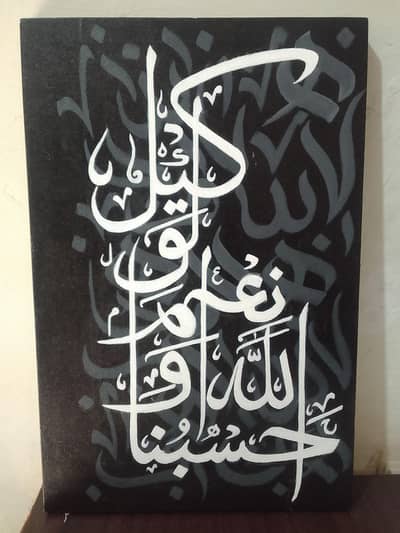 حسبنا
الله و
نعم
الو
كيل